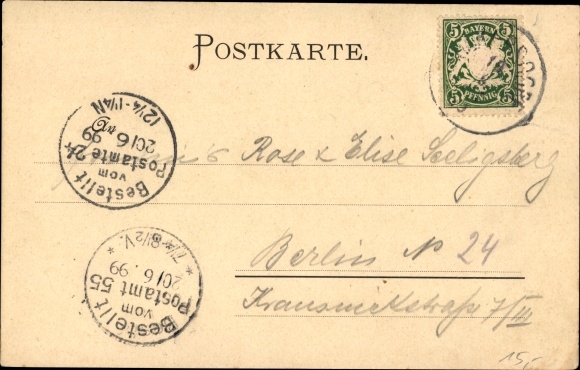 POSTKARTE.
5 BAYERN 5
5 PFENNIG 5
Bestellt
vom
Postamte 24
20/6 99
12¼-1¼N
Rose & Elise Seeligsberg
Berlin N 24
Krausnickstraße 7/III
Bestellt
vom
Postamt 55
20/6. 99
* 7¼-8½V. *
15,-